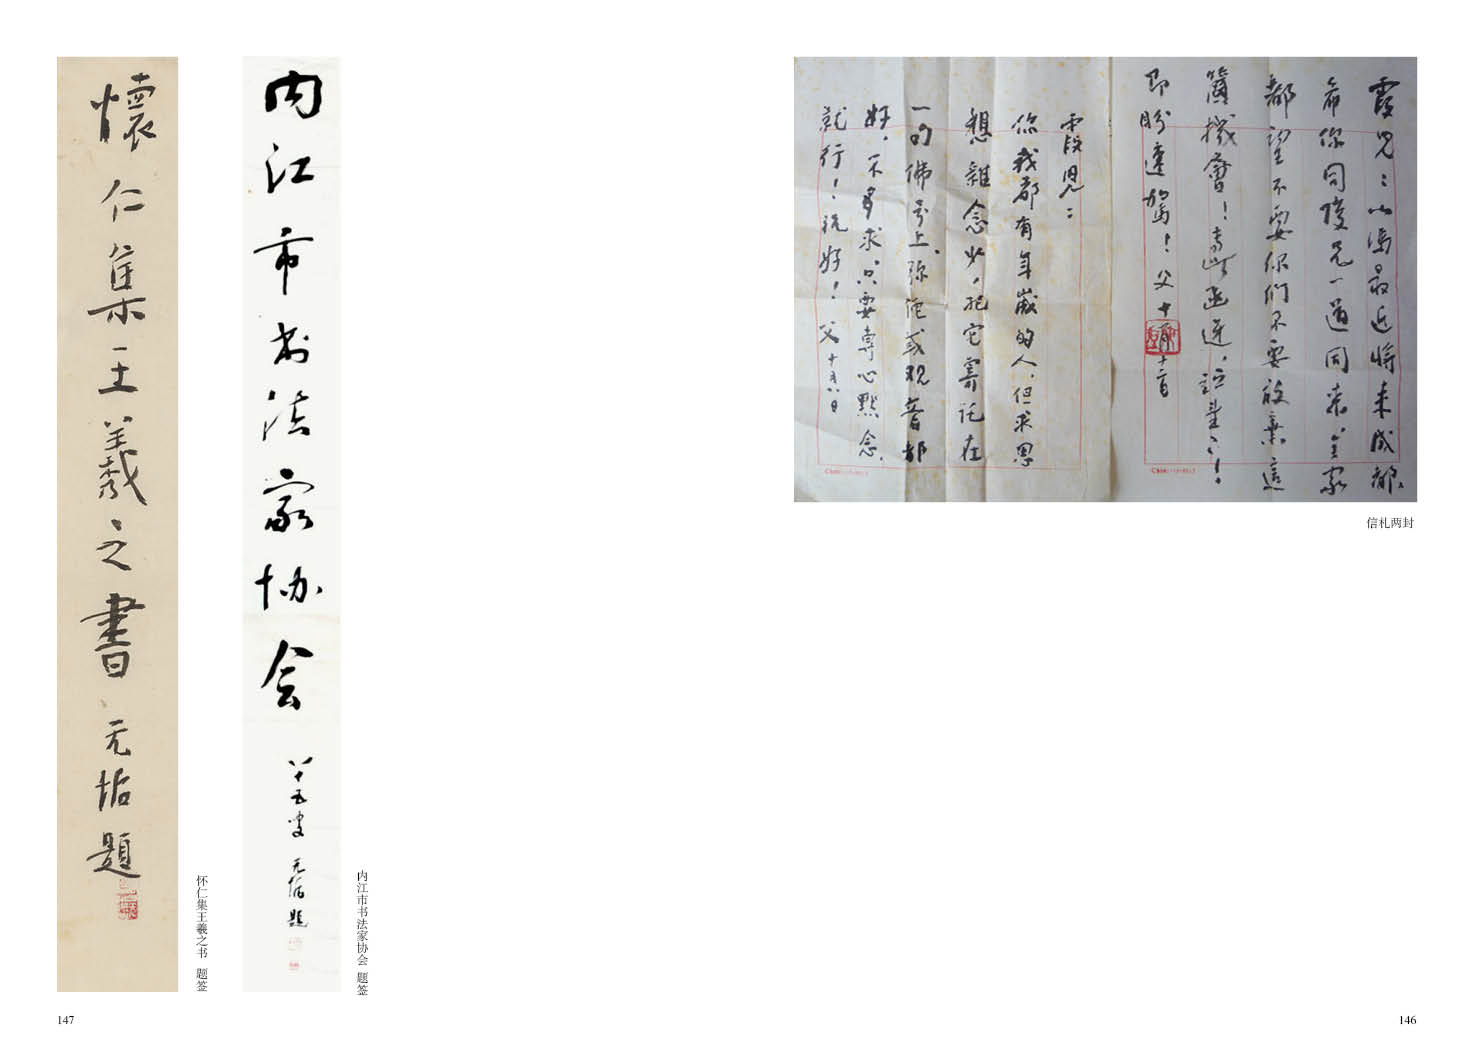 霞兒：以馮最近將来成都。
希你同陵兄一道同来，全家
都望不要你们不要放棄這
箇機會！專此函達，
即盼速駕！父十月十二日
霞兒：
你我都有年歲的人，但求思
想雜念少，把它寄託在
一句佛号上。弥陀或观音都
好，不多求。只要專心默念，
就行！祝好！父十月八日
信札两封
146
内江市书法家协会
八十五叟 无垢題
内江市书法家协会 题签
懷仁集王羲之書 无垢題
怀仁集王羲之书 题签
147